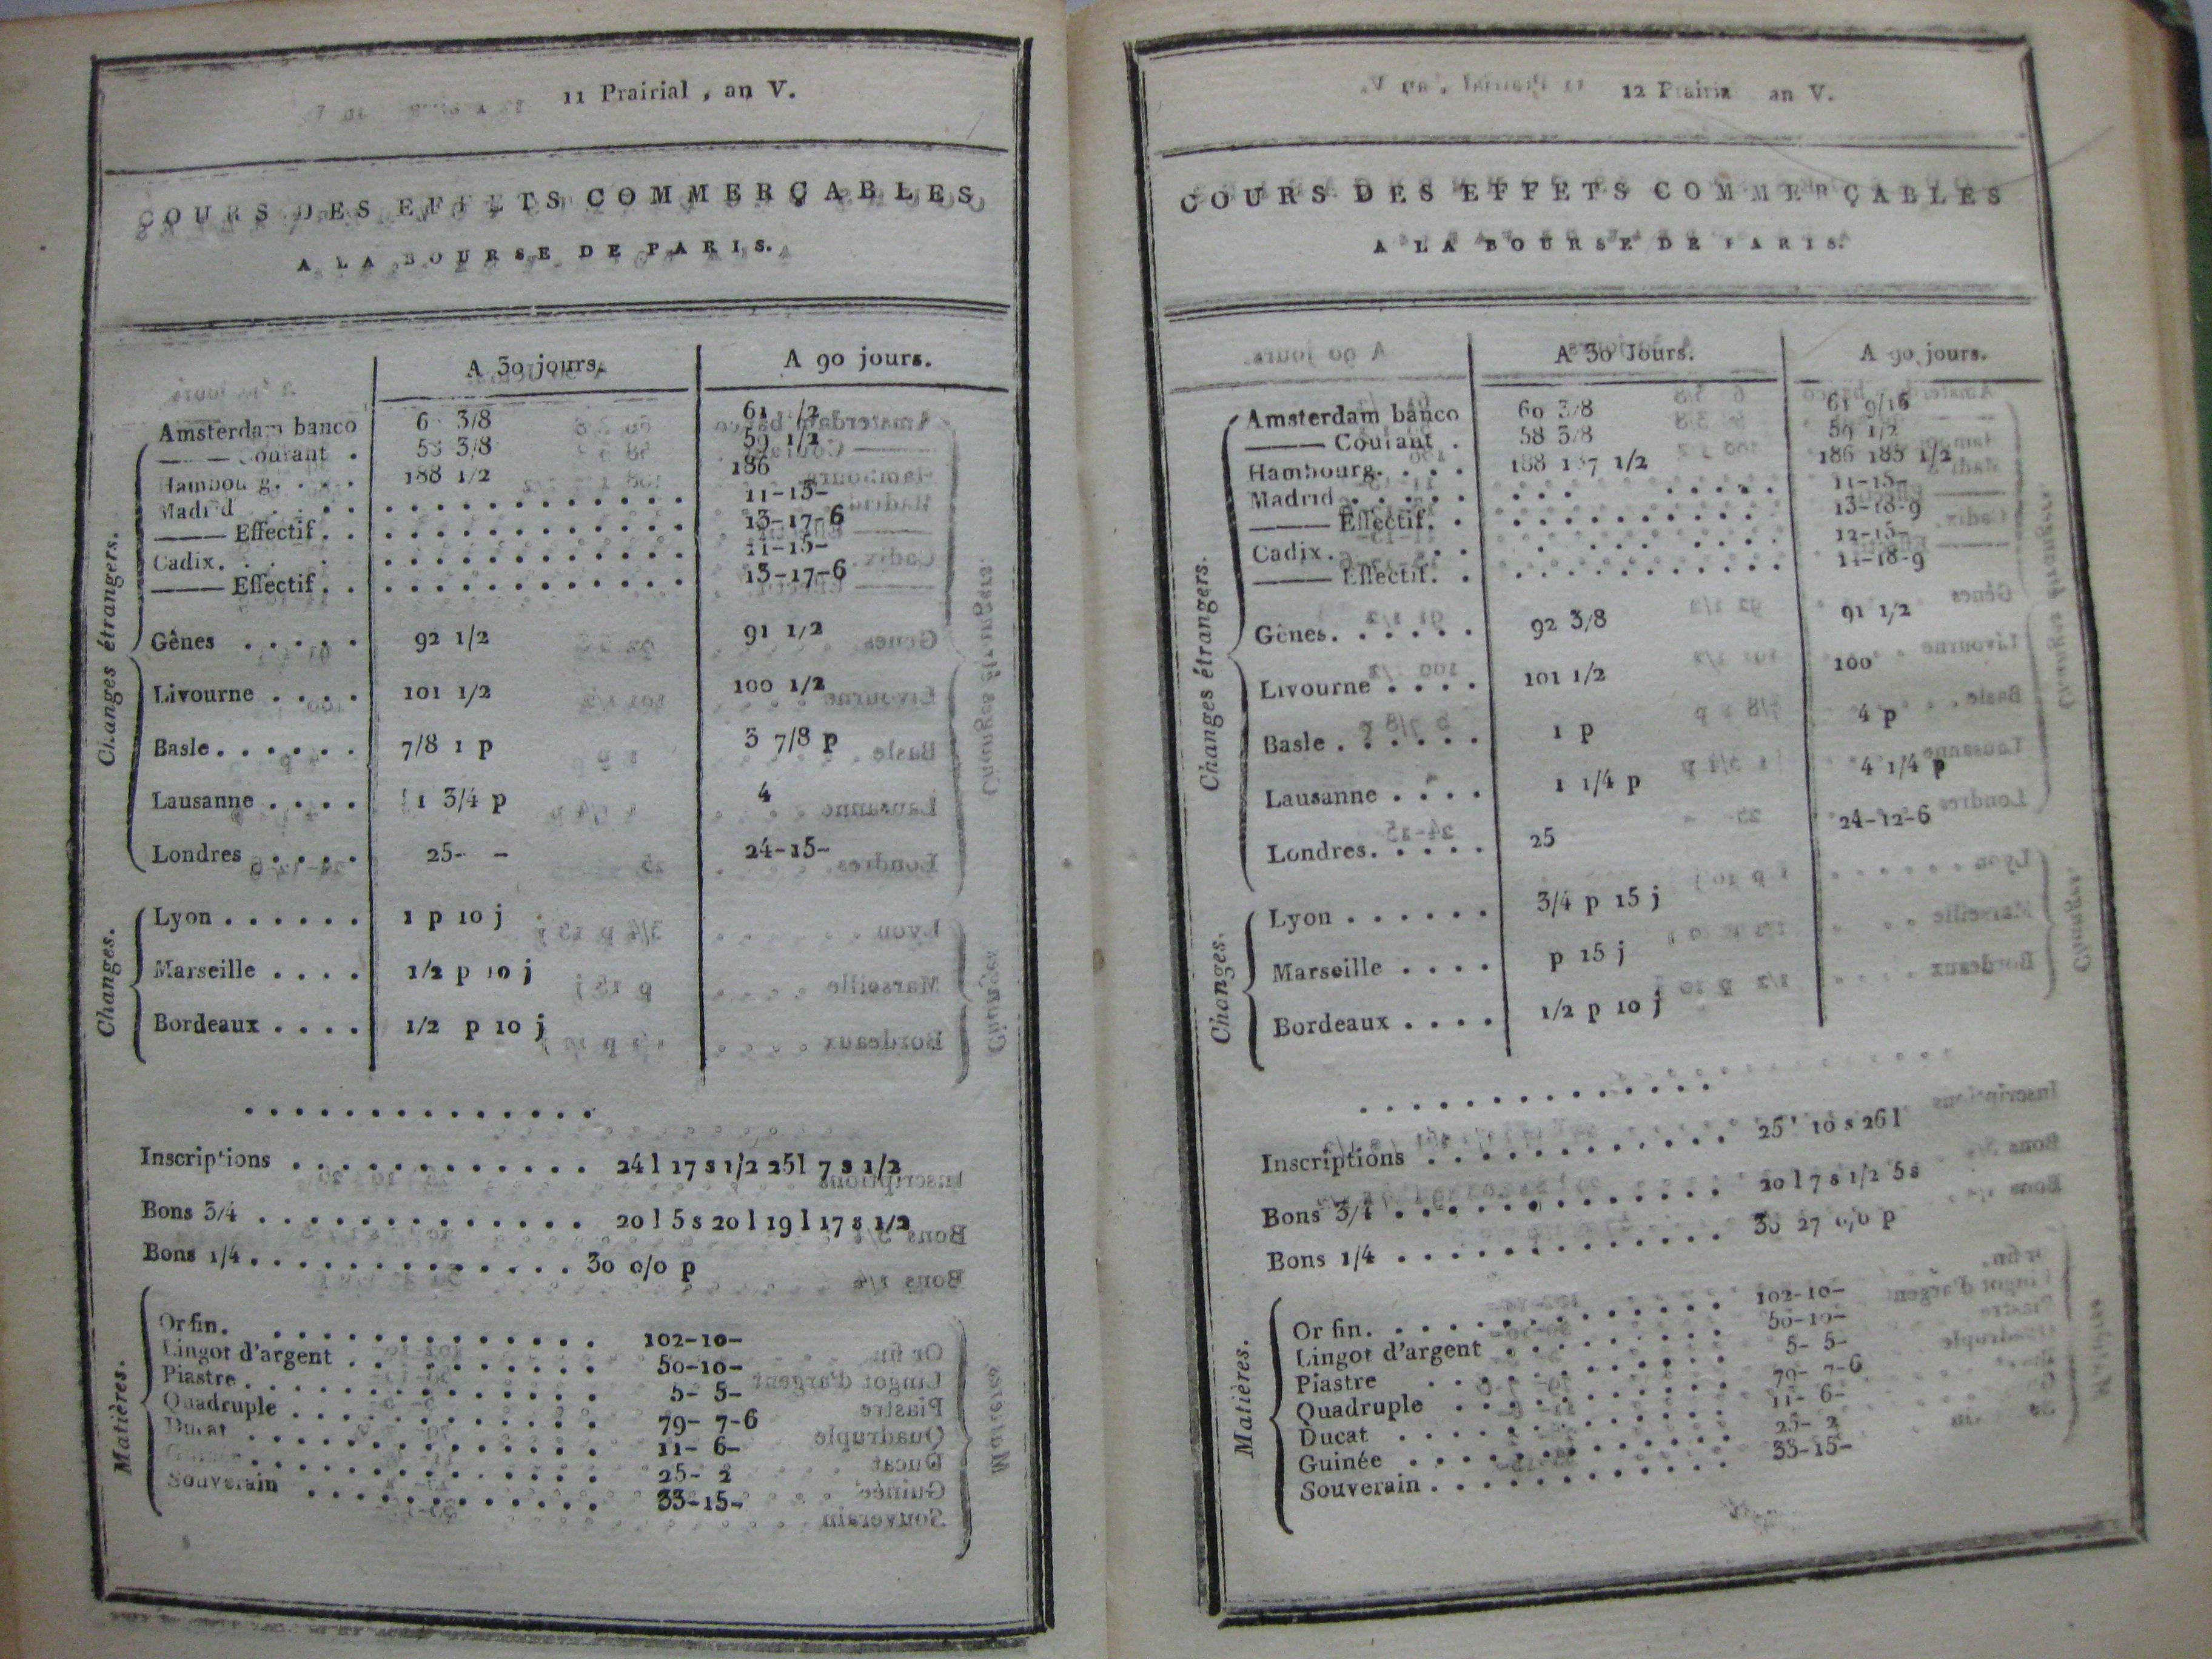 11 Prairial , an V.
COURS DES EFFETS COMMERÇABLES
A LA BOURSE DE PARIS.
A 30 jours. A 90 jours.
Changes étrangers.
Amsterdam banco 3/8 61 1/2
——— Courant . 58 3/8 59 1/2
Hambourg. . . . 188 1/2 186
Madrid . . . . . . . . . . . . . . . . 11-15-
——— Effectif . . . . . . . . . . . . . . 13-17-6
Cadix. . . . . . . . . . . . . . . . 11-15-
——— Effectif . . . . . . . . . . . . . . 13-17-6
Gênes . . . . . 92 1/2 91 1/2
Livourne . . . . 101 1/2 100 1/2
Basle . . . . . . 7/8 1 p 3 7/8 p
Lausanne . . . . 1 3/4 p 4
Londres . . . . 25- - 24-15-
Changes.
Lyon . . . . . . 1 p 10 j
Marseille . . . . 1/2 p 10 j
Bordeaux . . . . 1/2 p 10 j
. . . . . . . . . . . . . .
Inscriptions . . . . . . . . . . . . 24 l 17 s 1/2 25 l 7 s 1/2
Bons 3/4 . . . . . . . . . . . . . 20 l 5 s 20 l 19 l 17 s 1/2
Bons 1/4 . . . . . . . . . . . . . 30 0/0 p
Matières.
Or fin. . . . . . . . . . . . . . 102-10-
Lingot d'argent . . . . . . . . . . 50-10-
Piastre . . . . . . . . . . . . . . 5- 5-
Quadruple . . . . . . . . . . . . 79- 7-6
Ducat . . . . . . . . . . . . . . 11- 6-
. . . . . . . . . . . . . . 25- 2
Souverain . . . . . . . . . . . . 33-15-
12 Prairial an V.
COURS DES EFFETS COMMERÇABLES
A LA BOURSE DE PARIS.
A 30 Jours. A 90 jours.
Changes étrangers.
Amsterdam banco 60 3/8 61 9/16
——— Courant . 58 3/8 59 1/2
Hambourg. . . . 188 187 1/2 186 185 1/2
Madrid . . . . . . . . . . . . . . 11-15-
——— Effectif. . . . . . . . . . . . 13-18-9
Cadix. . . . . . . . . . . . . . 12-15-
——— Effectif. . . . . . . . . . . . 14-18-9
Gênes. . . . . . 92 3/8 91 1/2
Livourne . . . . 101 1/2 100
Basle . . . . . . 1 p 4 p
Lausanne . . . . 1 1/4 p 4 1/4 p
Londres. . . . . 25 24-12-6
Changes.
Lyon . . . . . . 3/4 p 15 j
Marseille . . . . p 15 j
Bordeaux . . . . 1/2 p 10 j
. . . . . . . . . . . . . .
Inscriptions . . . . . . . . . . . . 25 l 10 s 26 l
Bons 3/4 . . . . . . . . . . . . . 20 l 7 s 1/2 5 s
Bons 1/4 . . . . . . . . . . . . . 30 27 0/0 p
Matières.
Or fin. . . . . . . . . . . . . . 102-10-
Lingot d'argent . . . . . . . . . 50-10-
Piastre . . . . . . . . . . . . 5- 5-
Quadruple . . . . . . . . . . . 79- 7-6
Ducat . . . . . . . . . . . . . 11- 6-
Guinée . . . . . . . . . . . . . 25- 2
Souverain . . . . . . . . . . . . 33-15-